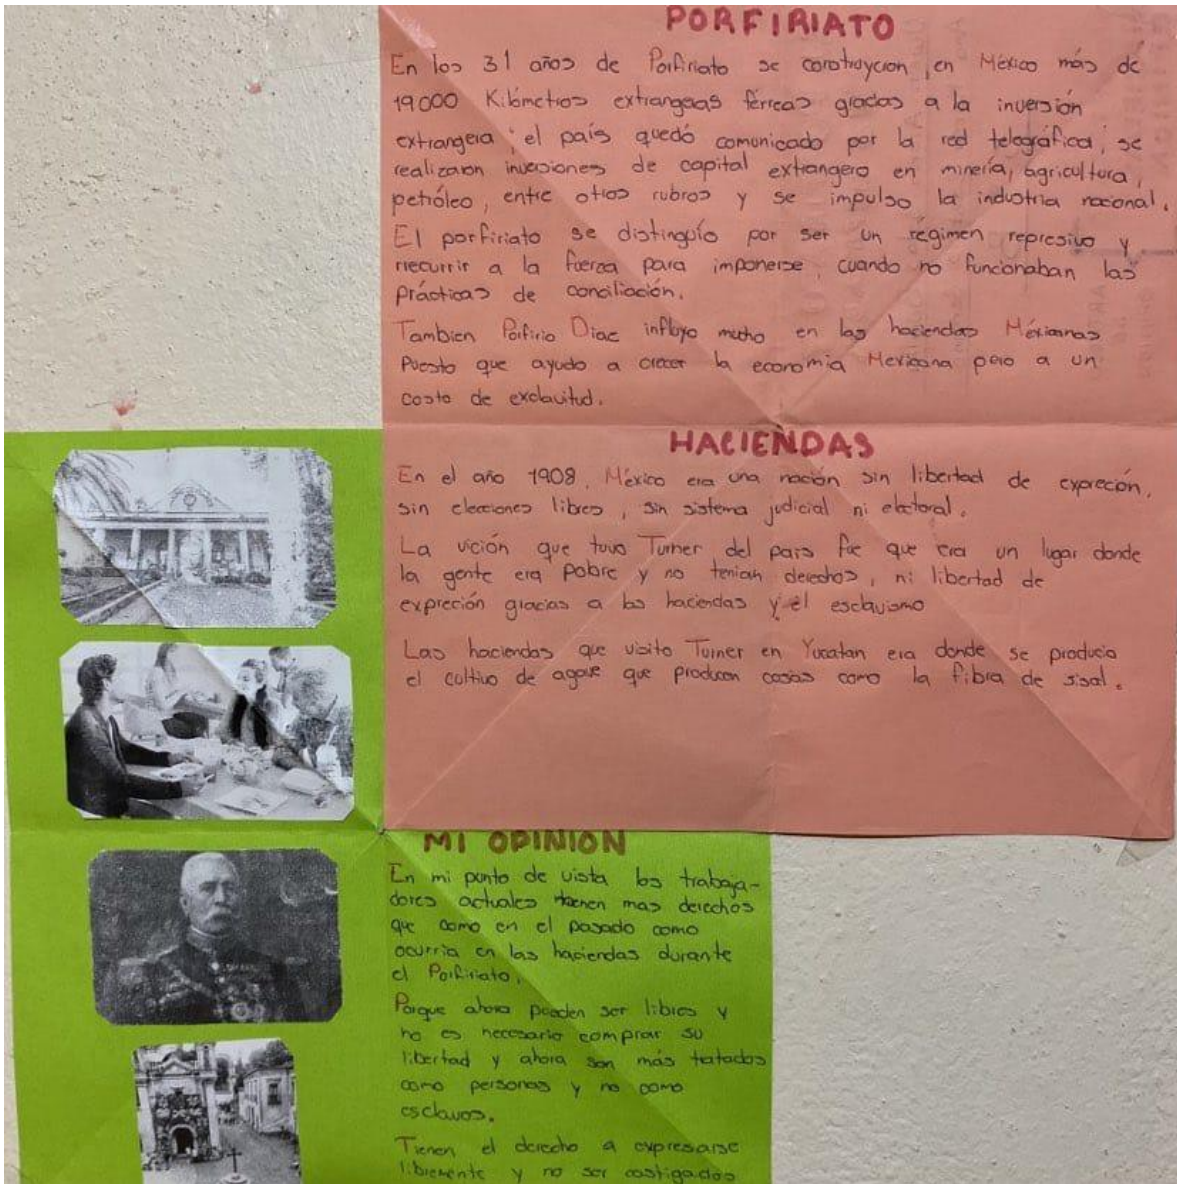 PORFIRIATO
En los 31 años de Porfiriato se construyeron en México más de
19000 Kilómetros extrangeas férreas gracias a la inversión
extrangera, el país quedó comunicado por la red telegráfica, se
realizaron inversiones de capital extrangero en minería, agricultura,
petróleo, entre otros rubros y se impulso la industria nacional.
El porfiriato se distinguío por ser un régimen represivo y
recurrir a la fuerza para imponerse, cuando no funcionaban las
prácticas de conciliación.
Tambien Porfirio Diac influyo mucho en las haciendas Méxicanas
Puesto que ayudo a crecer la economia Mexicana pero a un
costo de exclavitud.
HACIENDAS
En el año 1908, México era una nación sin libertad de expreción,
sin elecciones libres, sin sistema judicial ni electoral.
La vición que tuvo Turner del pais fue que era un lugar donde
la gente era pobre y no tenian derechos, ni libertad de
expreción gracias a las haciendas y el esclavismo
Las haciendas que visito Turner en Yucatan era donde se producia
el cultivo de agave que producen cosas como la fibra de sisal.
MI OPINION
En mi punto de vista los trabaja-
dores actuales tienen mas derechos
que como en el pasado como
ocurria en las haciendas durante
el Porfiriato.
Porque ahora pueden ser libres y
no es necesario comprar su
libertad y ahora son más tratados
como personas y no como
esclavos.
Tienen el derecho a expresarse
libremente y no ser castigados